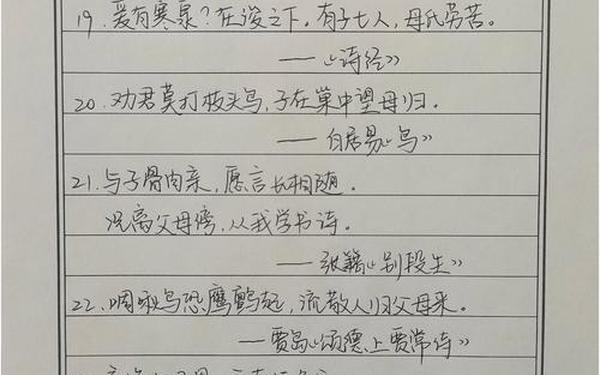 19. 爰有寒泉？在浚之下。有子七人，母氏劳苦。
——《诗经》
20. 劝君莫打枝头鸟，子在巢中望母归。
——白居易《鸟》
21. 与子骨肉亲，愿言长相随。
况离父母傍，从我学书诗。
——张籍《别段生》
22. 啁啾鸟恐鹰鹯起，流散人归父母来。
——贾岛《颂德上贾常侍》